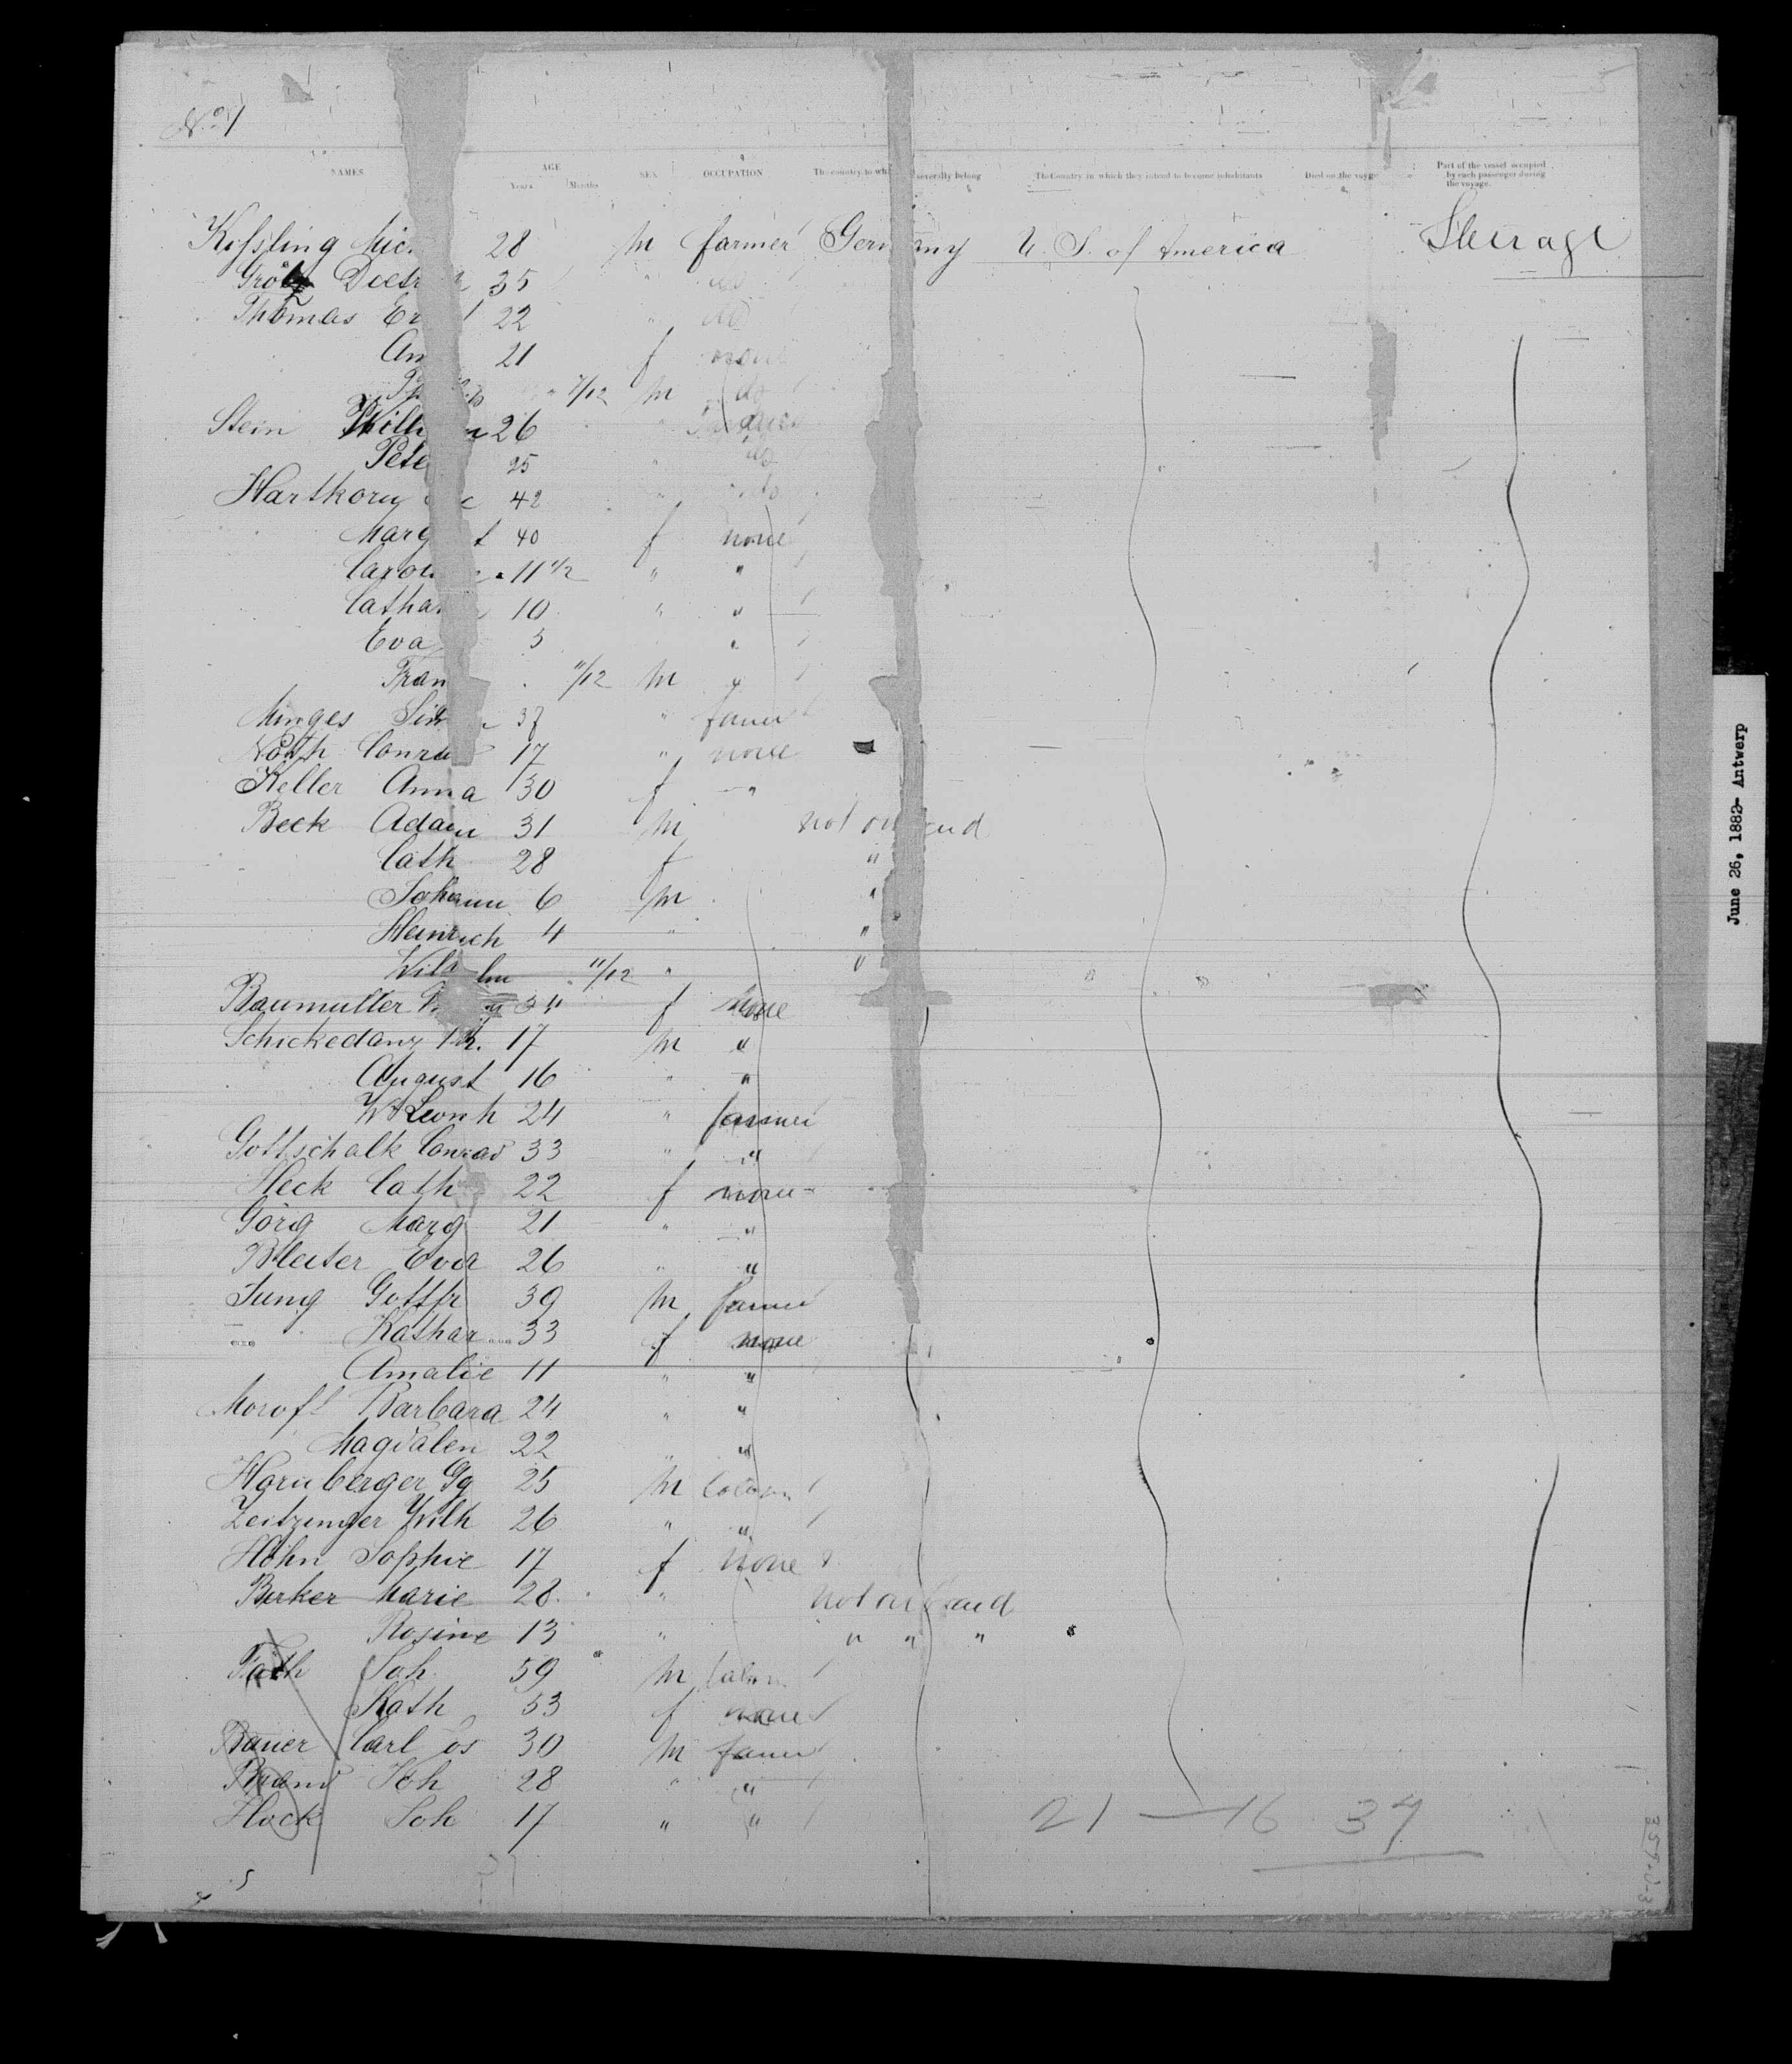 No 1
NAMES AGE Years Months SEX OCCUPATION The country to wh severally belong The Country in which they intend to become inhabitants Died on the voyge Part of the vessel occupied by each passenger during the voyage.
Kissling Mic 28 m farmer Germany U. S. of America Steerage
Dietr 35 " do
Thomas Er 22 " do
An 21 f none
7/12 m do
Stein Wilh m 26 "
Pete 25 " do
Hartkorn 42 " do
Marg t 40 f none
Carol 11 1/2 " "
Catha 10 " "
Eva 5 "
Fran 11/12 m "
Minges Sim 37 " farmer
Noth Conra 17 " none
Keller Anna 30 f "
Beck Adam 31 m not on board
Cath 28 f "
Johann 6 m "
Heinrich 4 " "
Wilhelm 11/12 " "
Baumuller 34 f none
Schickedanz 17 m "
August 16 " "
Leonh 24 " farmer
Gottschalk Conrad 33 " "
Heck Cath 22 f none
Görg Marg 21 " "
Eva 26 " "
Jung Gottfr 39 m farmer
Kathar 33 f none
Amalie 11 " "
Barbara 24 " "
Magdalen 22 " "
Hornberger Gg 25 m
Zeitzinger Wilh 26 " "
Höhn Sophie 17 f none
Berker Marie 28 " not on board
Rosine 13 " " " "
Joh 59 m
Kath 53 f none
Bauer Carl Jos 30 m farmer
Brand Joh 28 " "
Hock Joh 17 " "
21 — 16 37
June 26, 1882- Antwerp